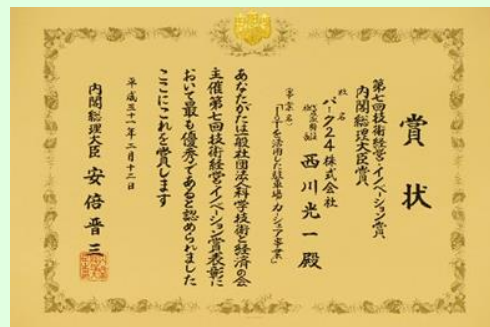 賞状
第七回技術経営・イノベーション賞
内閣総理大臣賞
社名
パーク24株式会社
代表取締役社長 西川光一殿
(事業名)
「IT を活用した駐車場・カーシェア事業」
あなたがたは一般社団法人科学技術と経済の会
主催第七回技術経営・イノベーション賞表彰に
おいて最も優秀であると認められました
ここにこれを賞します
平成三十一年二月十二日
内閣総理大臣 安倍晋三